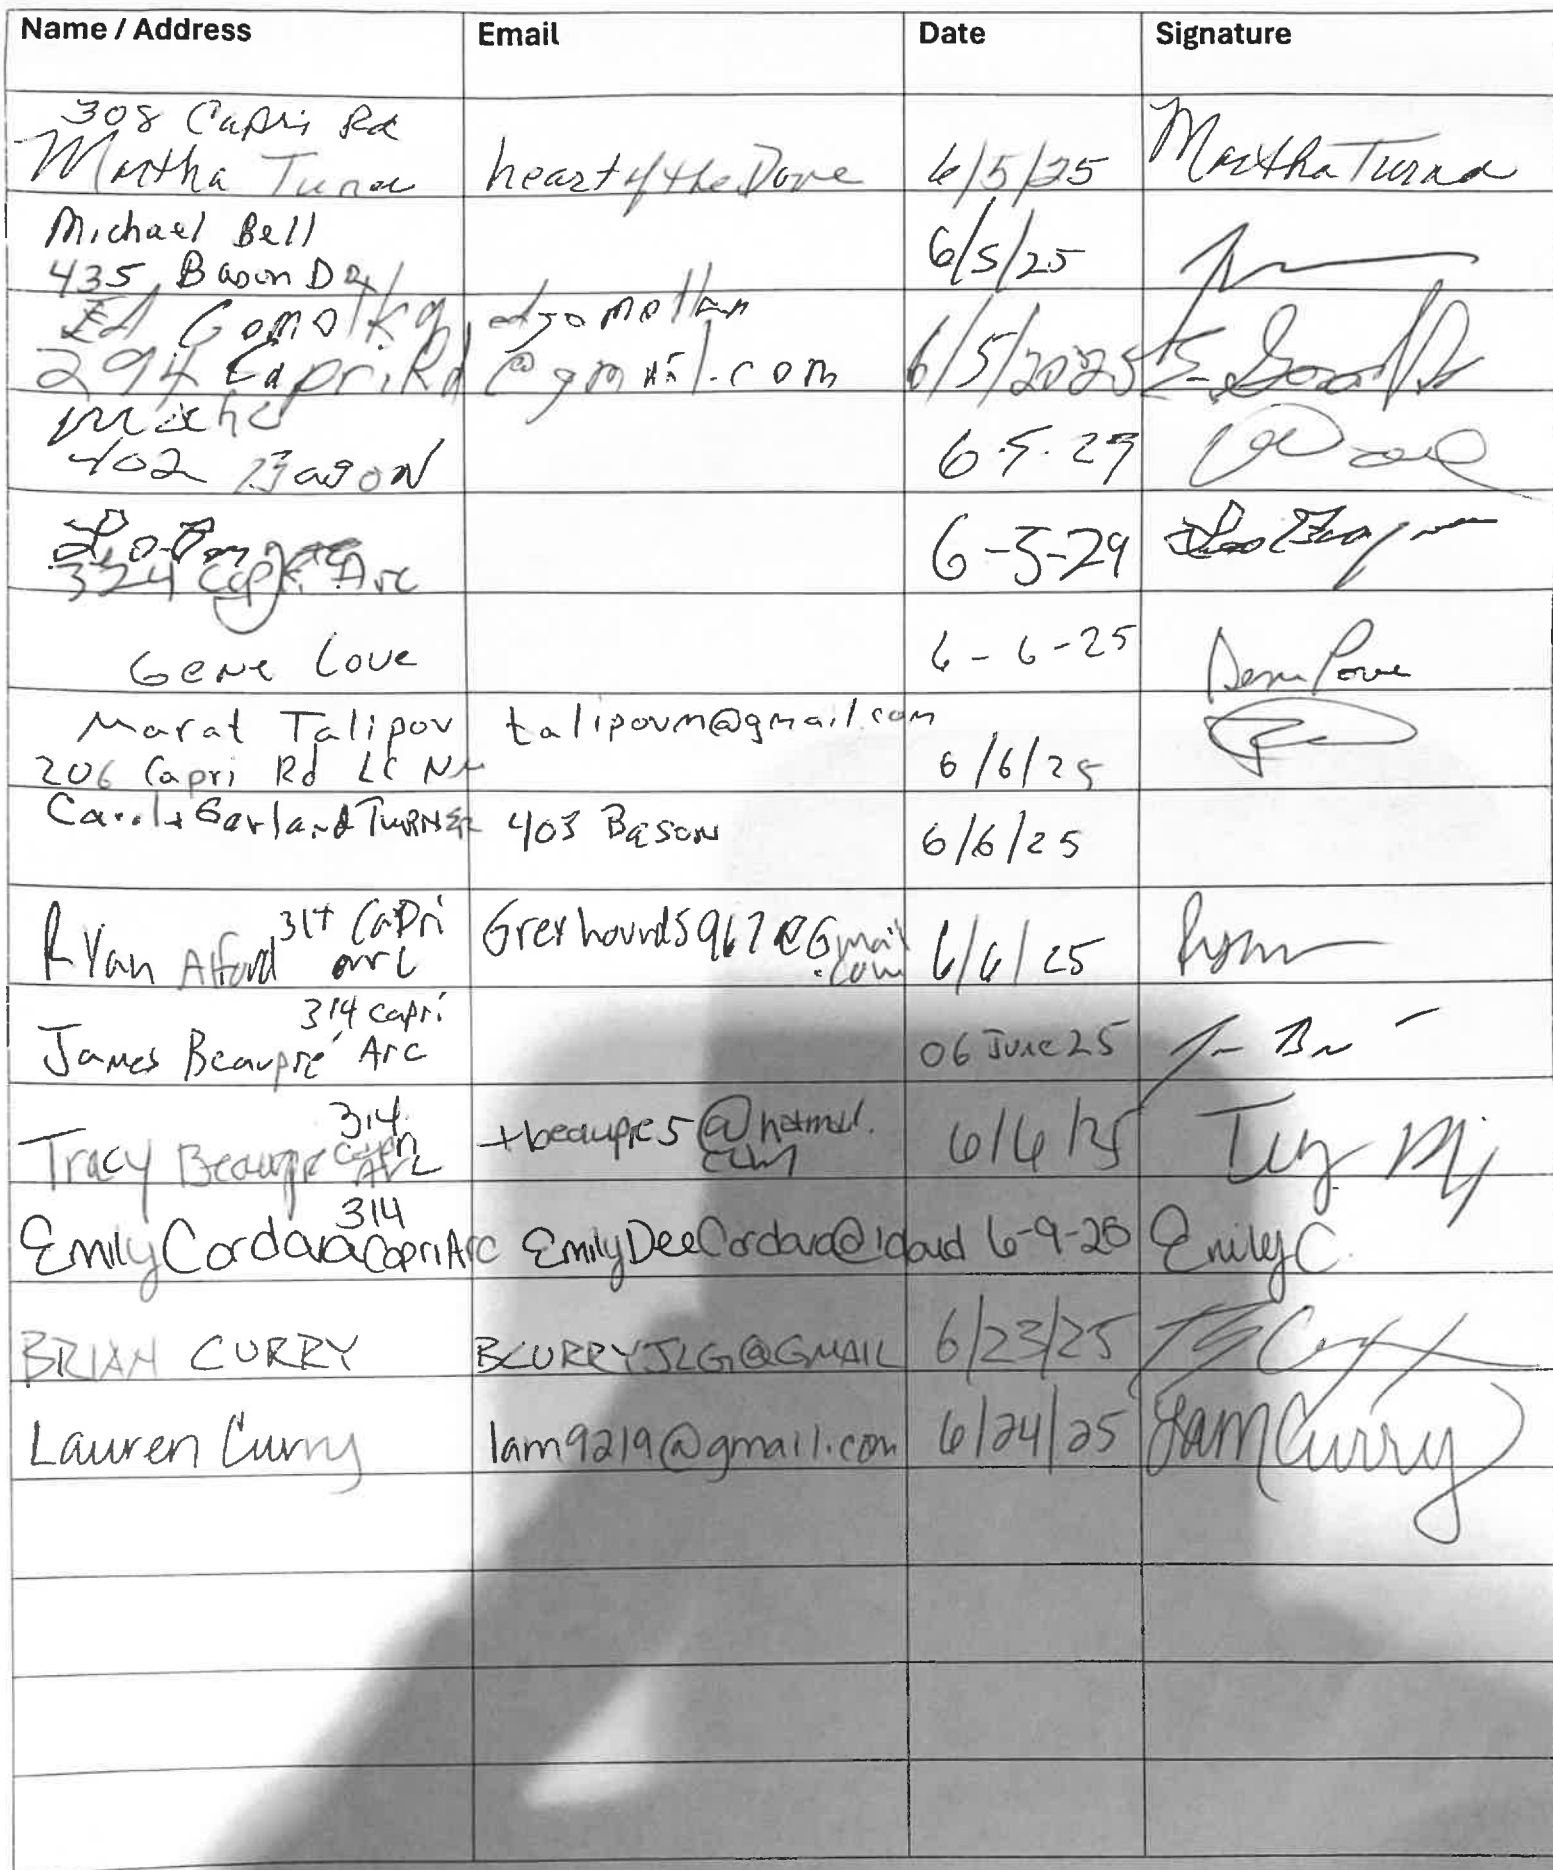 Name / Address Email Date Signature
308 Capri Rd
Martha Turner heart of the Dove 6/5/25 Martha Turner
Michael Bell
435 Bason Dr 6/5/25
Ed Gomolka
294 Capri Rd @gmail.com 6/5/2025
402 Bason 6.5.25
324 Capri Arc 6-5-29
Gene Love 6-6-25 Gene Love
Marat Talipov talipovm@gmail.com
206 Capri Rd LC NM 6/6/25
Carol + Garland TURNER 403 Bason 6/6/25
Ryan Alford 314 Capri Arc Greyhound5967@Gmail.com 6/6/25 Ryan
314 Capri
James Beaupré Arc 06 June 25
314
Tracy Beaupre Capri Arc tbeaupre5@hotmail.com 6/6/25
314
Emily Cordova Capri Arc EmilyDeeCordova@icloud 6-9-25 Emily C.
BRIAN CURRY BCURRYJLG@GMAIL 6/23/25
Lauren Curry lam9219@gmail.com 6/24/25 Lam Curry